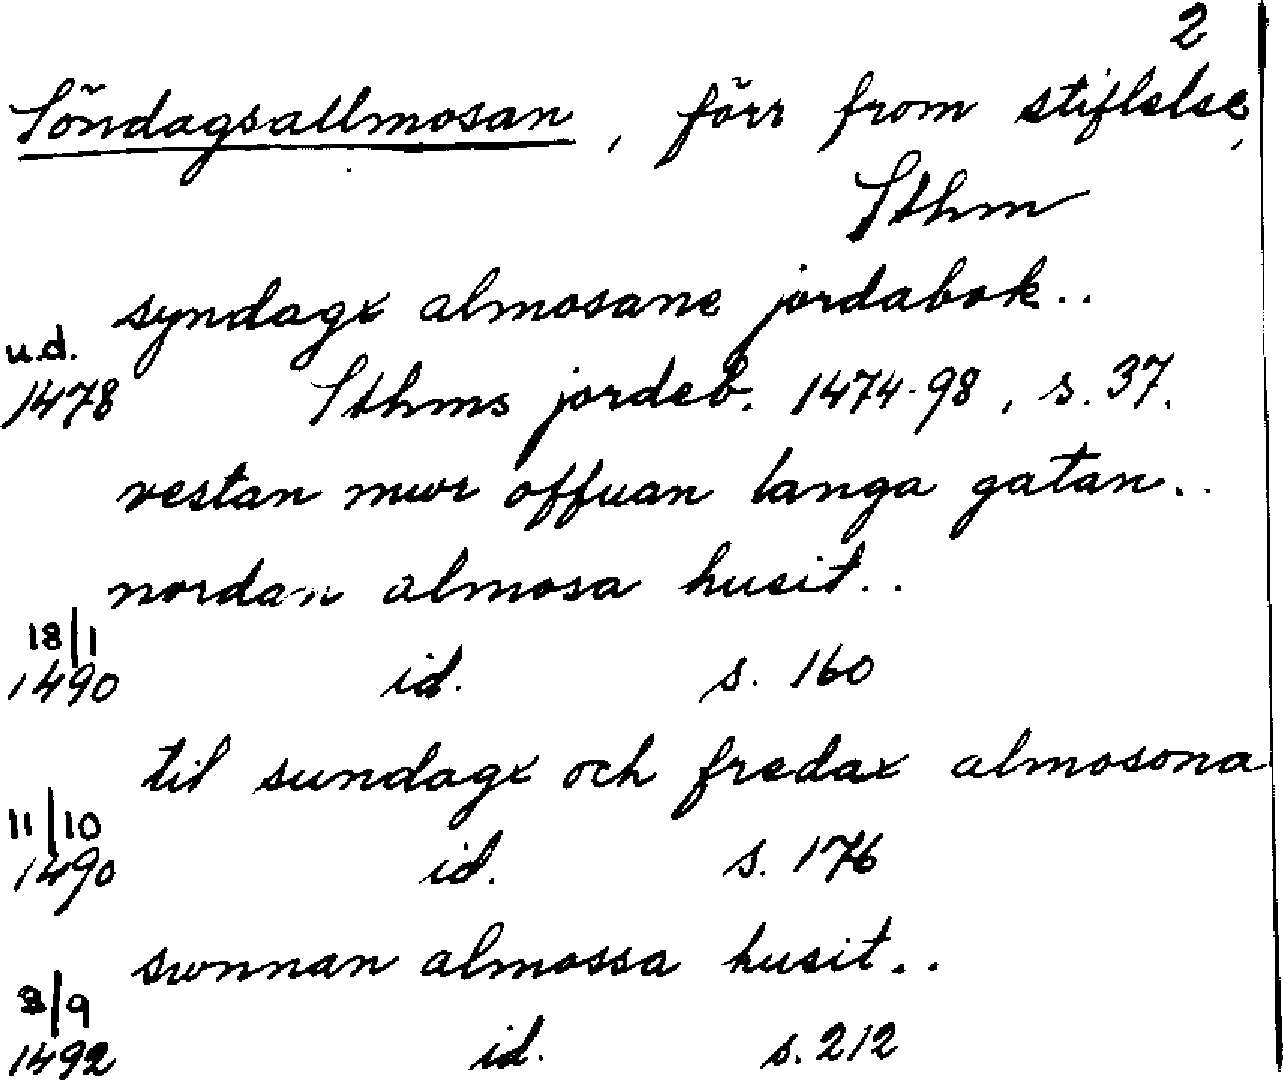 2
Söndagsallmosan, förr from stiftelse,
Sthm
syndagx almosane jordabok..
u.d.
1478 Sthms jordeb. 1474-98, s. 37.
vestan mwr offuan langa gatan..
nordan almosa husit..
18/1
1490 id. s. 160
til sundagx och fredax almosona
11/10
1490 id. s. 176
swnnan almossa husit..
3/9
1492 id. s. 212